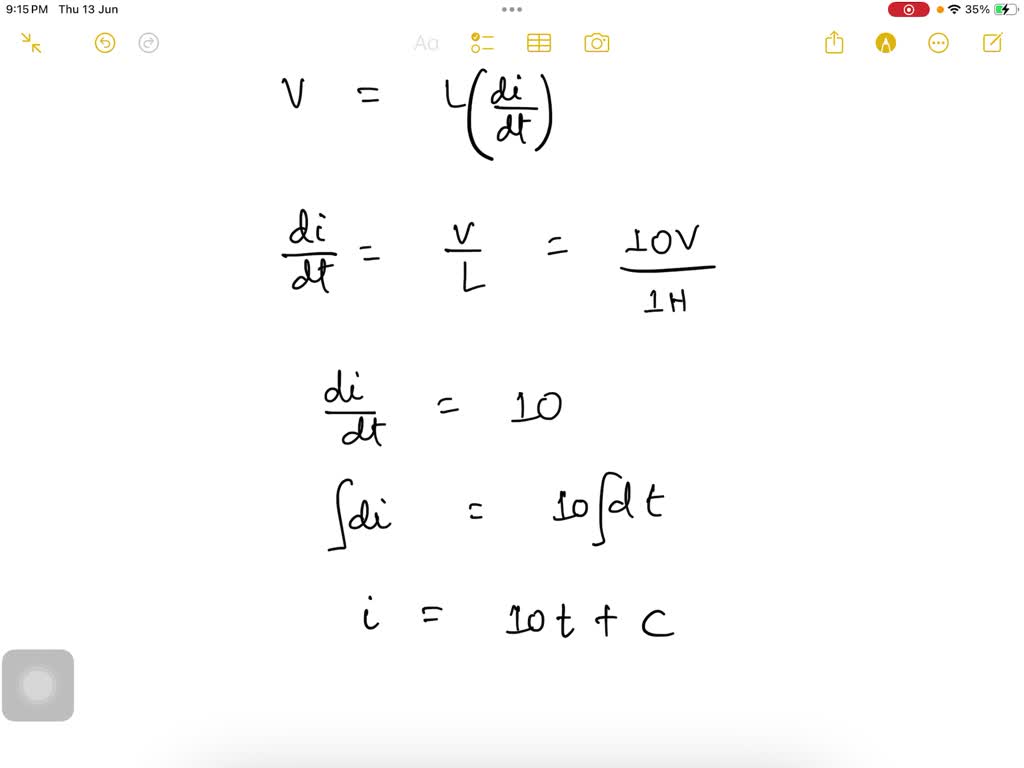 9:15 PM Thu 13 Jun 35%
Aa
V = L(di/dt)
di/dt = V/L = 10V/1H
di/dt = 10
∫di = 10∫dt
i = 10t + c